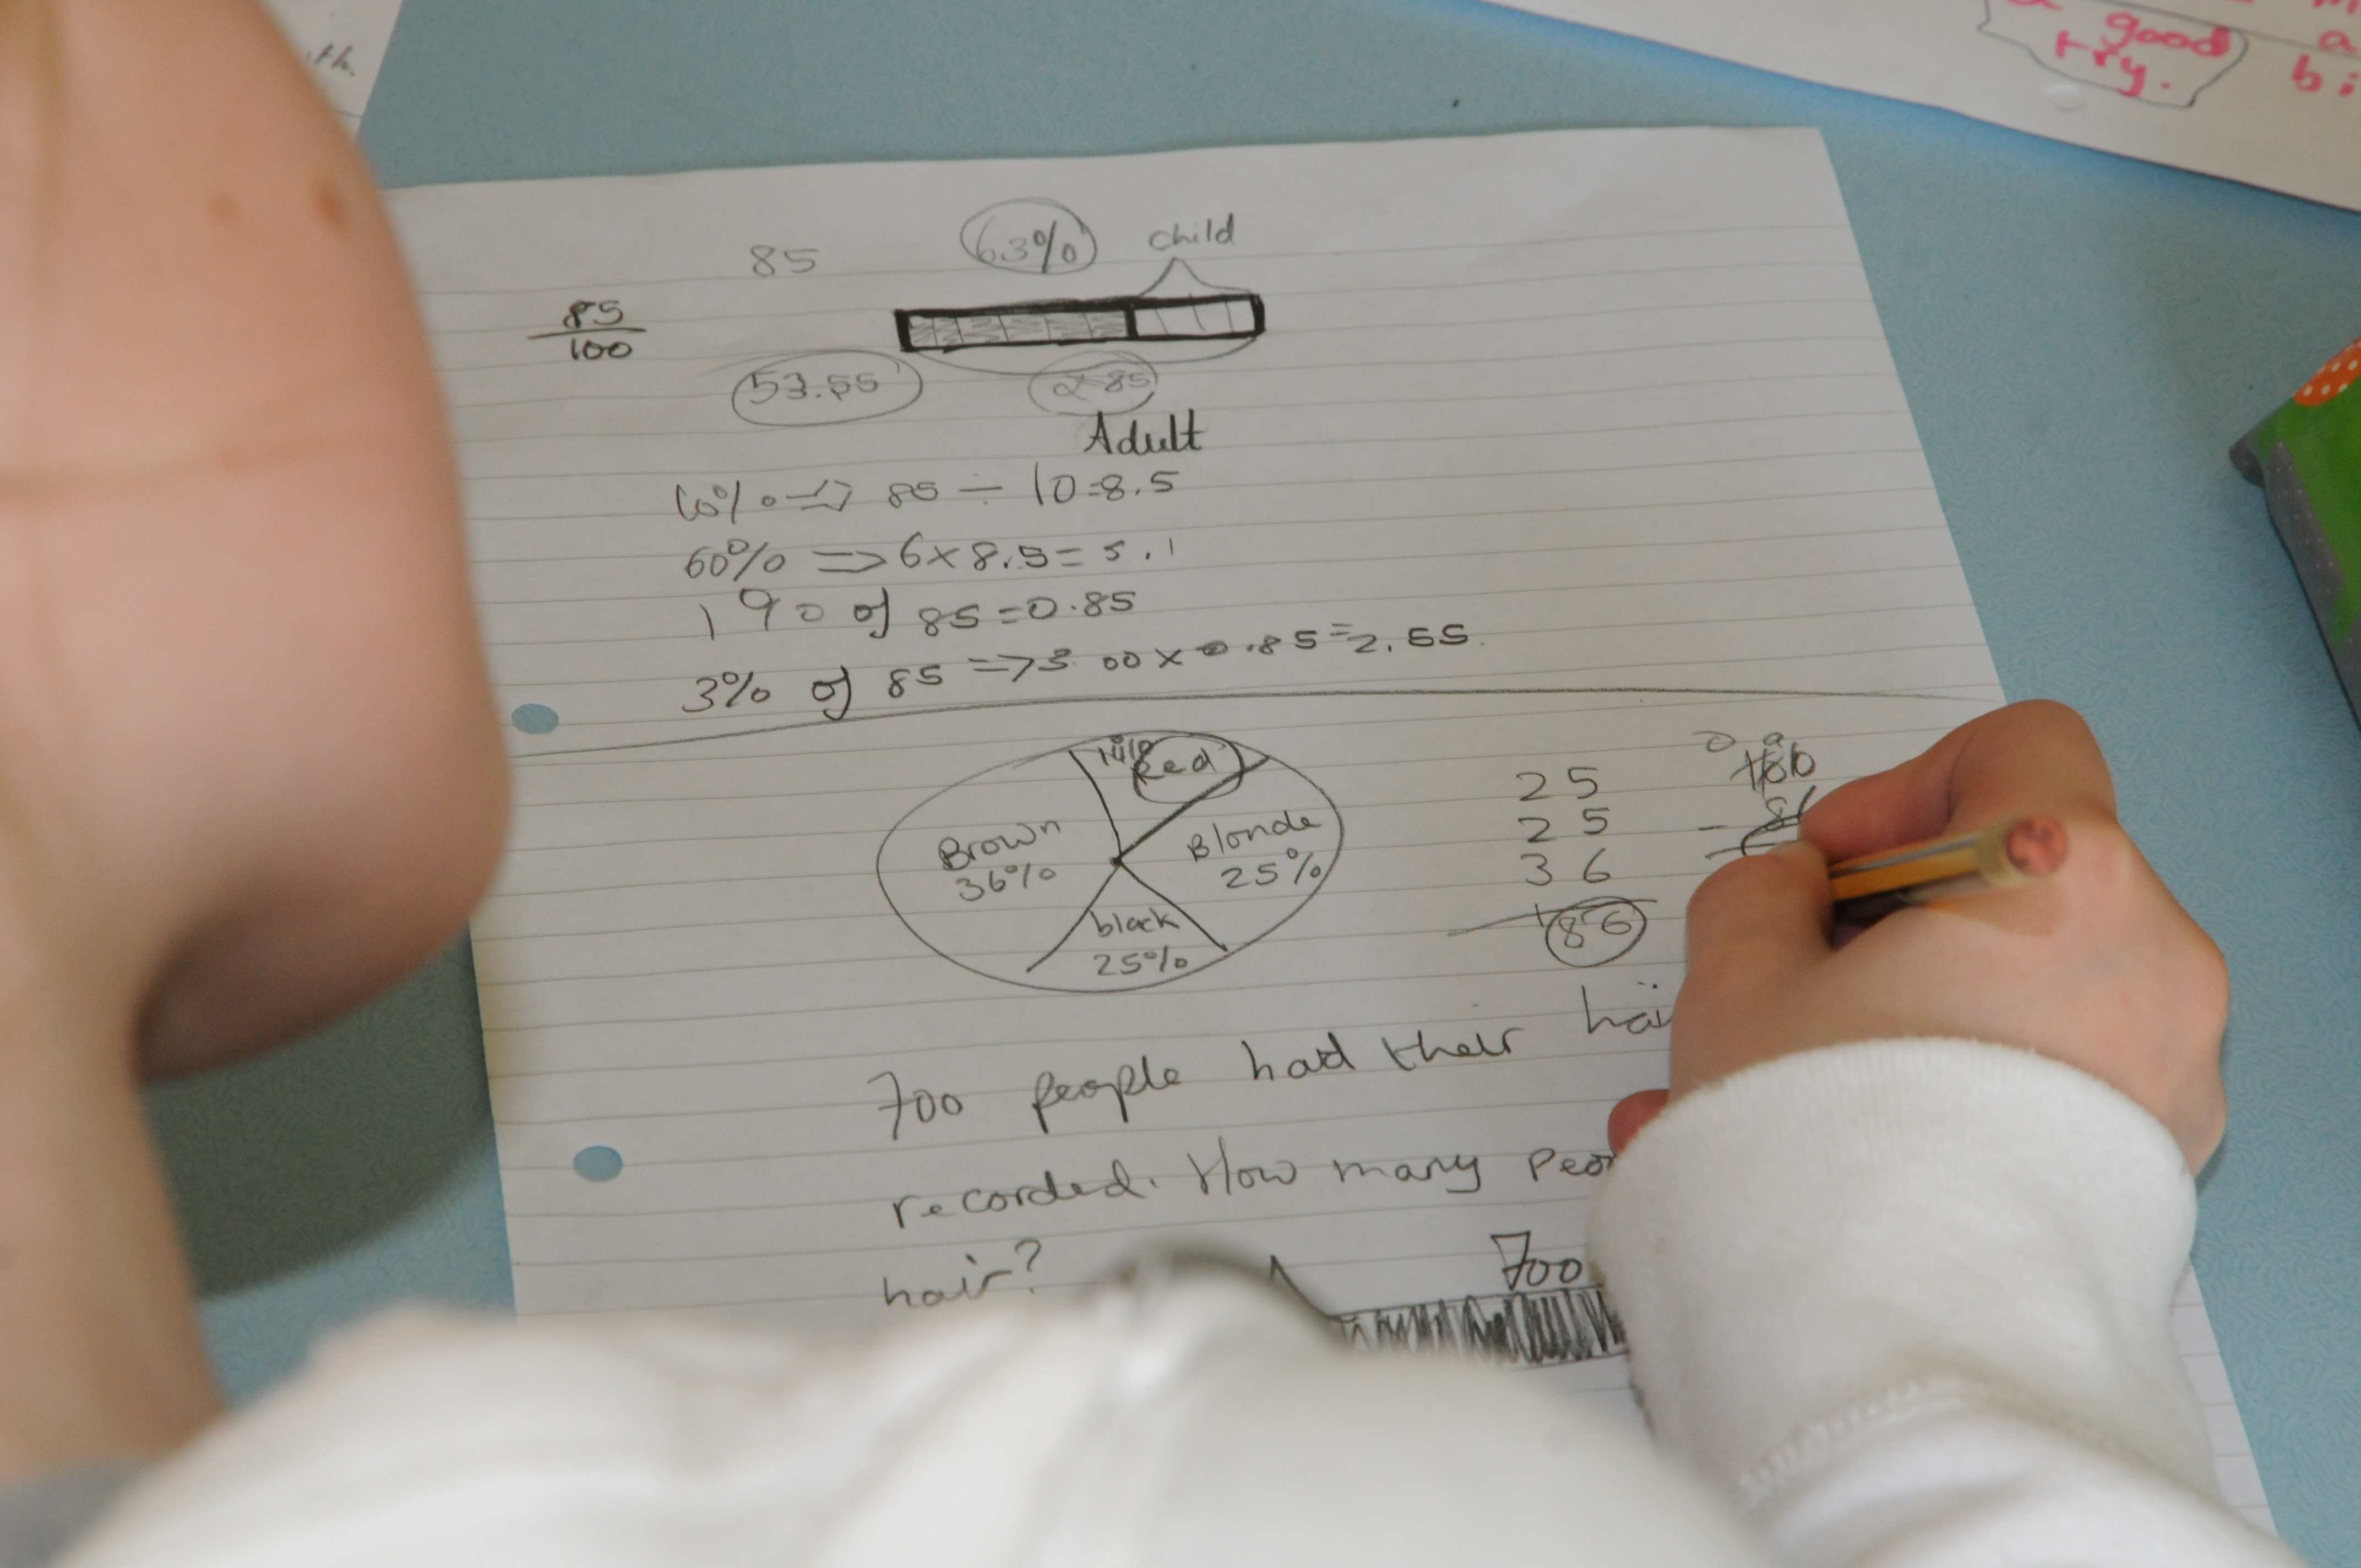 th.
good
try.
a
bi
85
63%
child
85
100
53.55
Adult
10% => 85 ÷ 10=8.5
60% => 6x8.5= 5.1
1% of 85=0.85
3% of 85 =>3.00x0.85=2.55
14% Red
Brown
36%
Blonde
25%
black
25%
25
25
36
1
86
0 9
100
- 8
700 people had their hai
recorded. How many peo
hair?
700